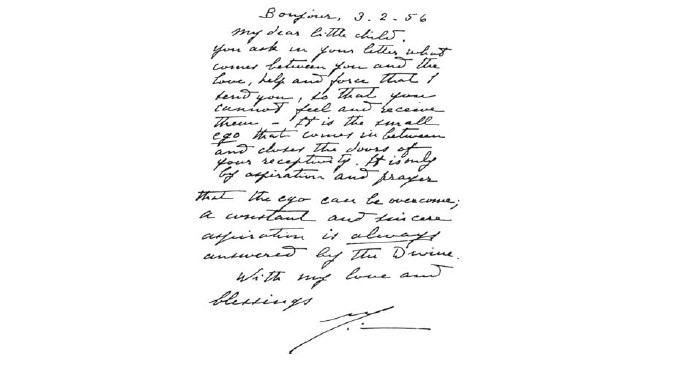 Bonjour, 3. 2. 56
My dear little child,
you ask in your letter what
comes between you and the
love, help and force that I
send you, so that you
cannot feel and receive
them – It is the small
ego that comes in between
and closes the doors of
your receptivity. It is only
by aspiration and prayer
that the ego can be overcome;
a constant and sincere
aspiration is always
answered by the Divine.
With my love and
blessings